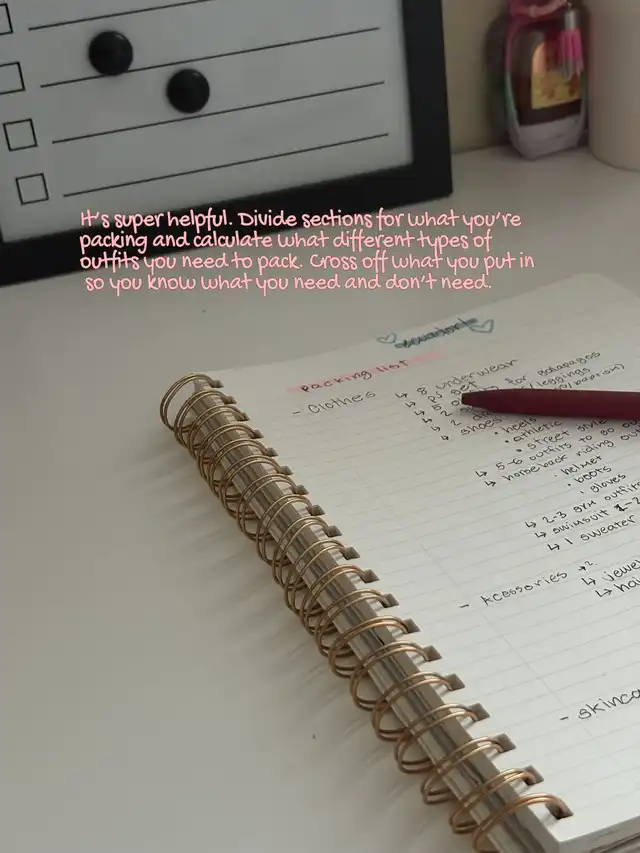 It's super helpful. Divide sections for what you're
packing and calculate what different types of
outfits you need to pack. Cross off what you put in
so you know what you need and don't need.
packing list
- Clothes
↳ 8 underwear
↳ 2
for galapagos
↳ shoes
• heels
• athletic
• street style
↳ 5-6 outfits to go
↳ horseback riding
• helmet
• boots
• gloves
↳ 2-3 gym outfits
↳ swimsuit
↳ 1 sweater
- Acessories